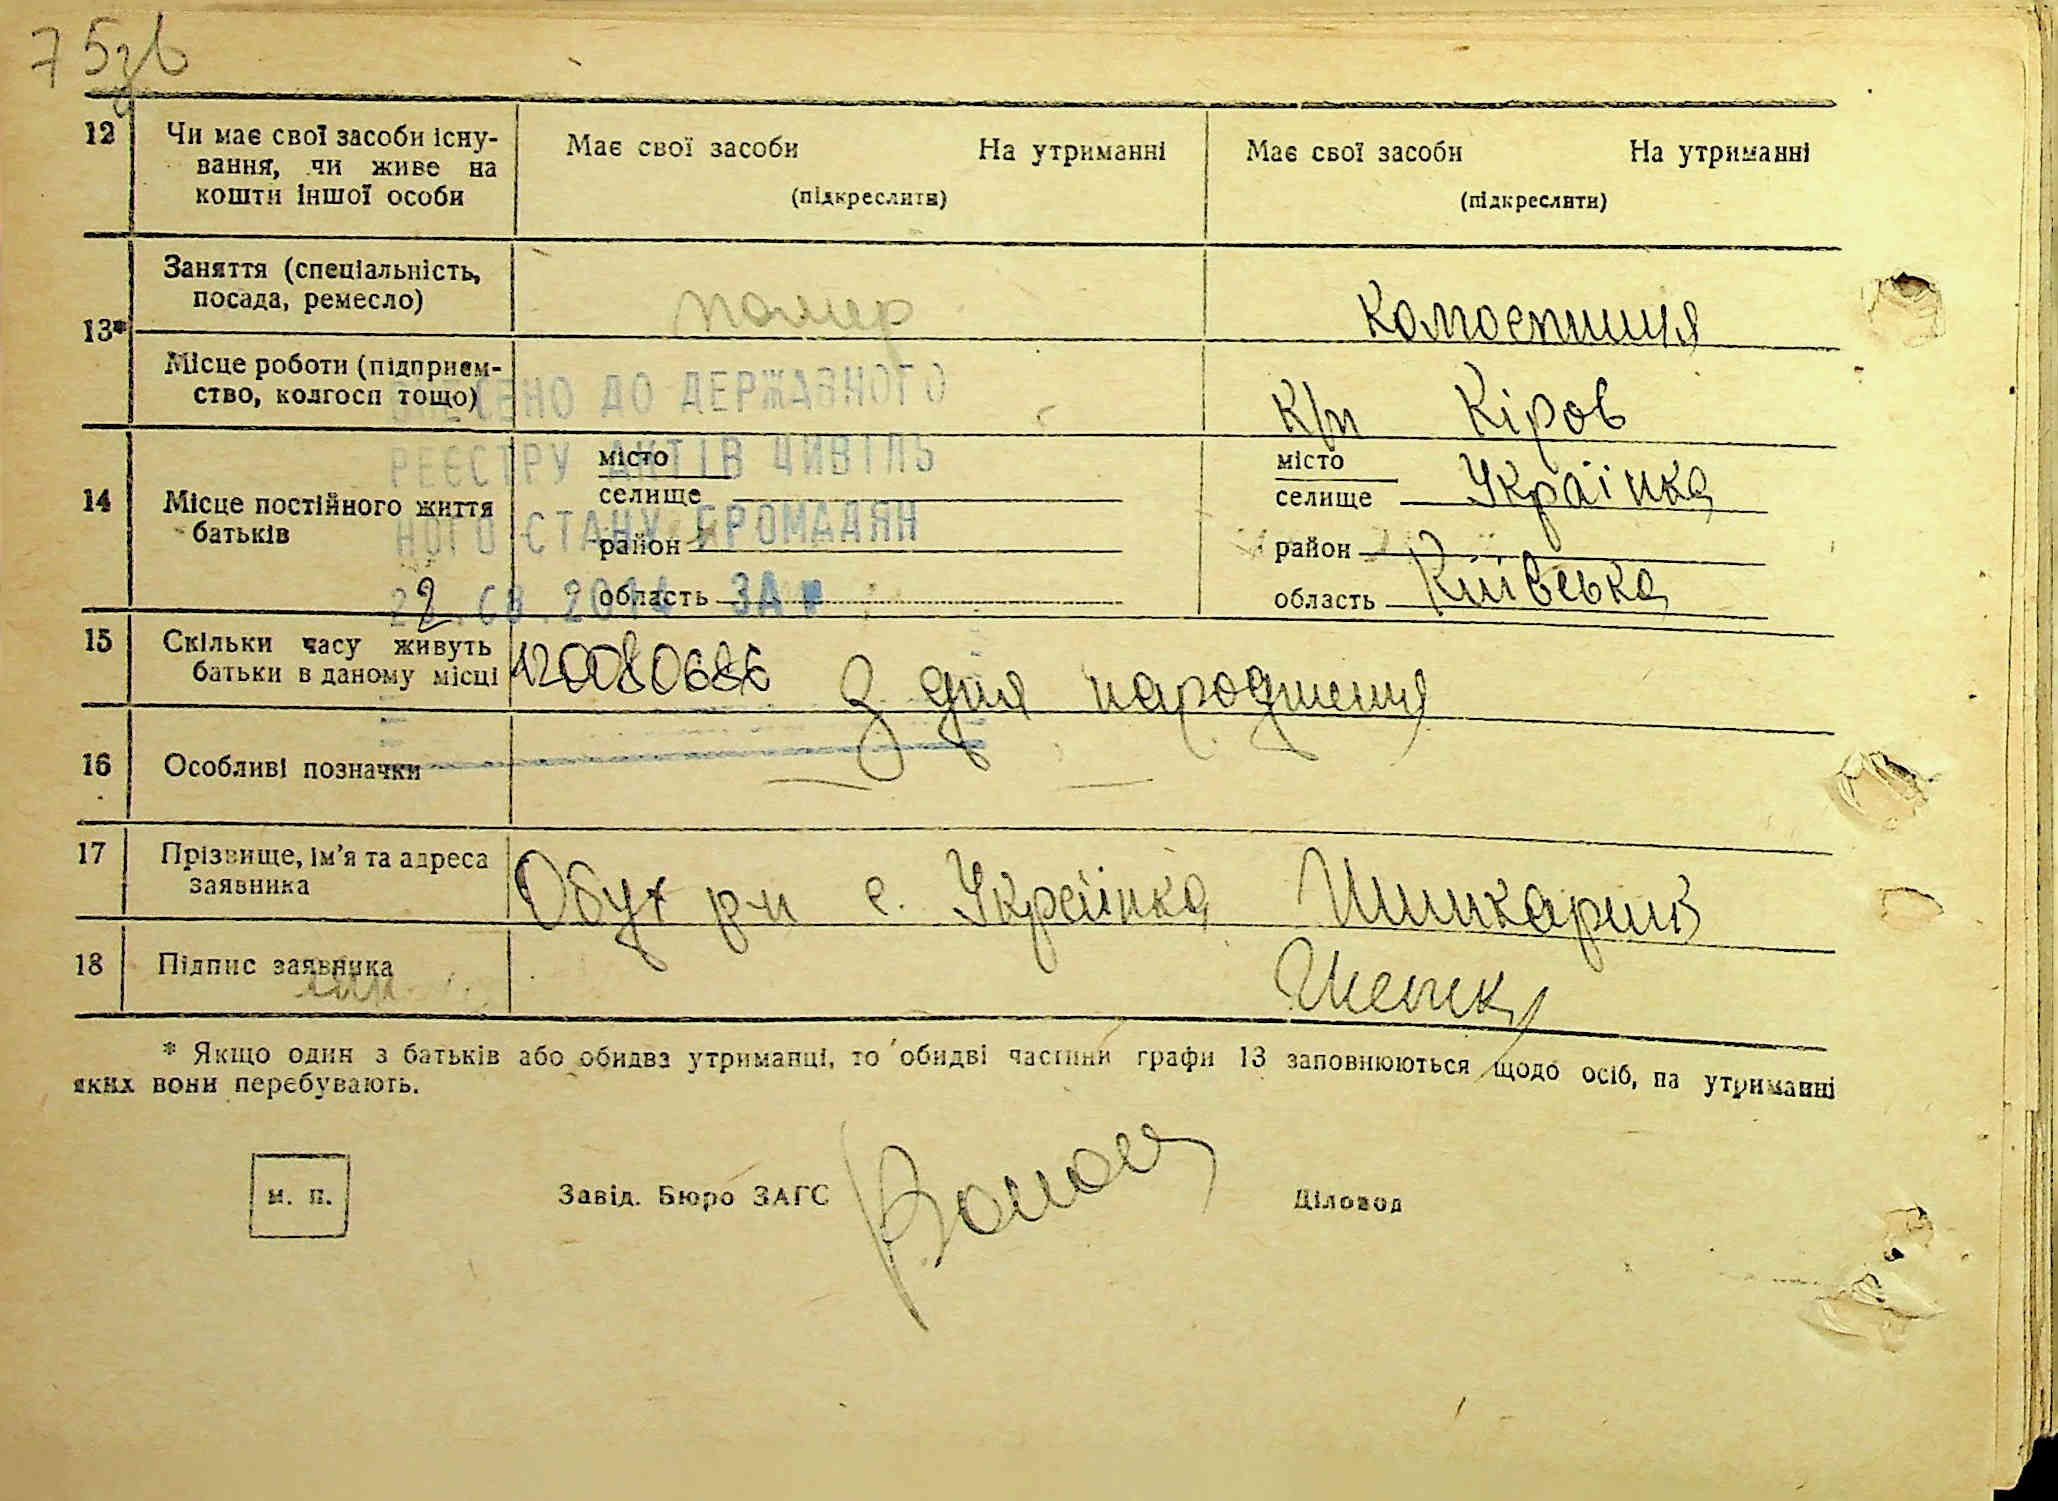 75зв
12 Чи має свої засоби існу- Має свої засоби На утриманні Має свої засоби На утриманні
вання, чи живе на
кошти іншої особи (підкреслити) (підкреслити)
Заняття (спеціальність,
посада, ремесло) помер
13*
Місце роботи (підприєм-
ство, колгосп тощо) к/п Кіров
ВНЕСЕНО ДО ДЕРЖАВНОГО
РЕЄСТРУ АКТІВ ЦИВІЛЬ
НОГО СТАНУ ГРОМАДЯН
ЗА №
14 Місце постійного життя
батьків
місто
селище
район
область
місто
селище Українка
район
область Київська
15 Скільки часу живуть
батьки в даному місці З дня народження
16 Особливі позначки
17 Прізвище, ім'я та адреса
заявника Обух р-н с. Українка
18 Підпис заявника
* Якщо один з батьків або обидва утриманці, то обидві частини графи 13 заповнюються щодо осіб, на утриманні
яких вони перебувають.
м. п. Завід. Бюро ЗАГС Діловод